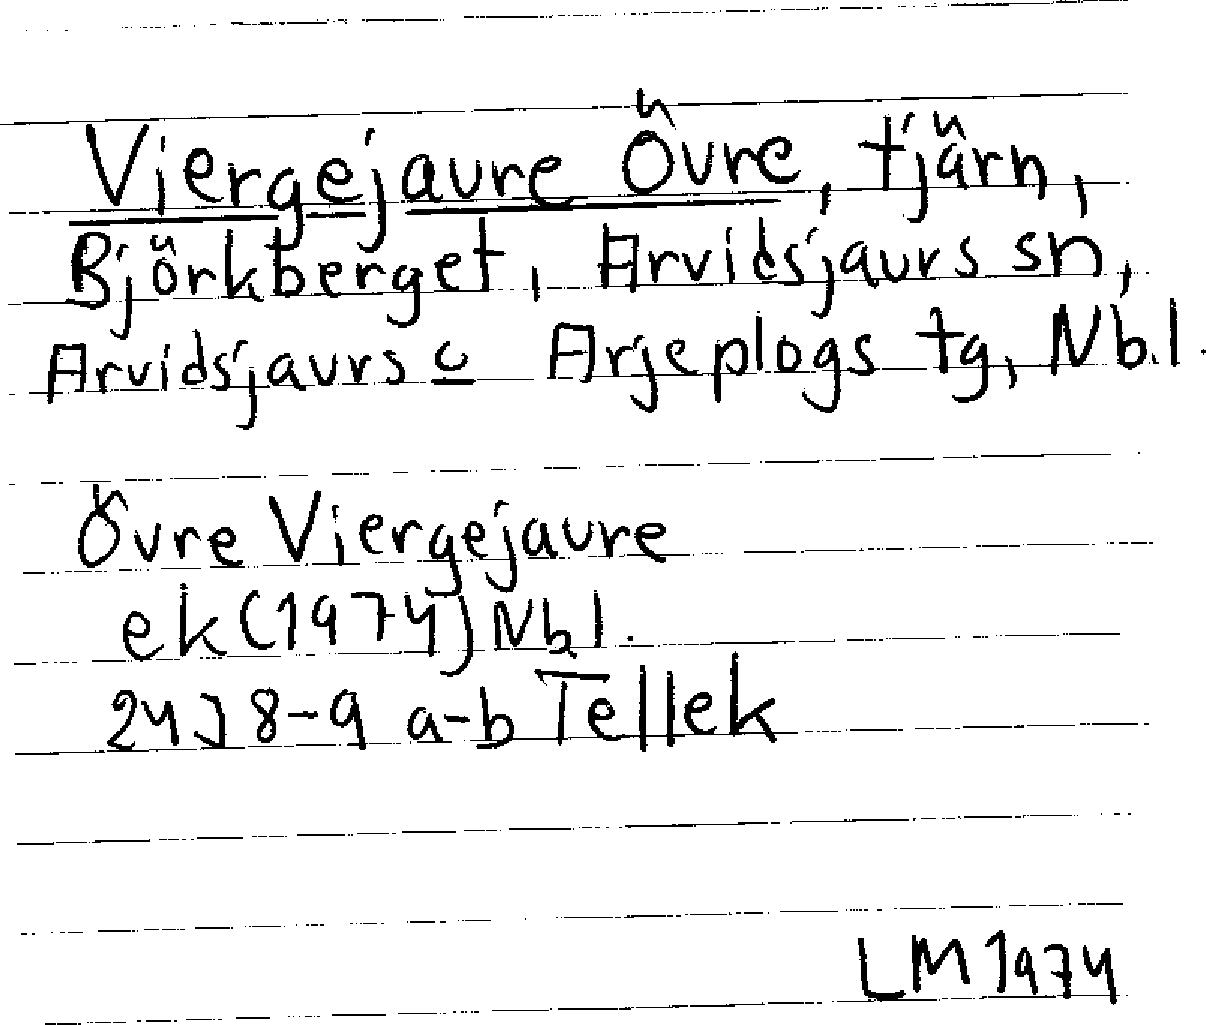 Viergejaure Övre, tjärn,
Björkberget, Arvidsjaurs sn,
Arvidsjaurs o Arjeplogs tg, Nbl.
Övre Viergejaure
ek (1974) Nbl.
24J 8-9 a-b Tellek
LM 1974